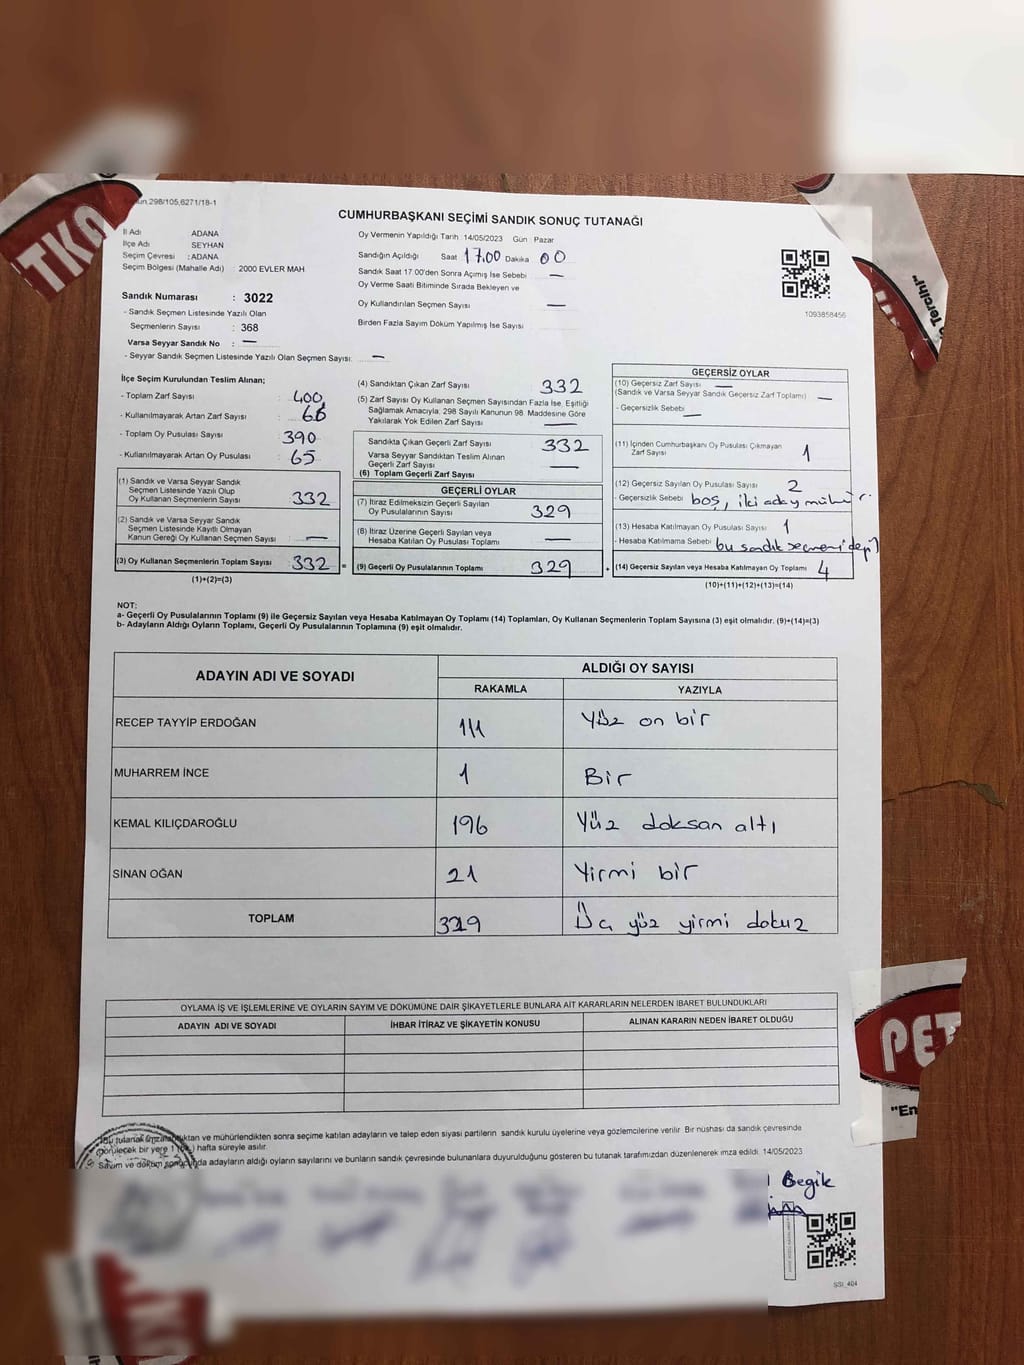 un.298/105,6271/18-1
CUMHURBAŞKANI SEÇİMİ SANDIK SONUÇ TUTANAĞI
İl Adı ADANA
İlçe Adı SEYHAN
Seçim Çevresi : ADANA
Seçim Bölgesi (Mahalle Adı) : 2000 EVLER MAH
Sandık Numarası : 3022
- Sandık Seçmen Listesinde Yazılı Olan
Seçmenlerin Sayısı : 368
Varsa Seyyar Sandık No : —
- Seyyar Sandık Seçmen Listesinde Yazılı Olan Seçmen Sayısı: —
Oy Vermenin Yapıldığı Tarih 14/05/2023 Gün : Pazar
Sandığın Açıldığı Saat 17.00 Dakika 00
Sandık Saat 17.00'den Sonra Açımış İse Sebebi —
Oy Verme Saati Bitiminde Sırada Bekleyen ve
Oy Kullandırılan Seçmen Sayısı —
Birden Fazla Sayım Döküm Yapılmış İse Sayısı
1093858456
TKA
n Tercihi"
İlçe Seçim Kurulundan Teslim Alınan;
- Toplam Zarf Sayısı : 400
- Kullanılmayarak Artan Zarf Sayısı : 68
- Toplam Oy Pusulası Sayısı : 390
- Kullanılmayarak Artan Oy Pusulası : 65
(1) Sandık ve Varsa Seyyar Sandık
Seçmen Listesinde Yazılı Olup
Oy Kullanan Seçmenlerin Sayısı : 332
(2) Sandık ve Varsa Seyyar Sandık
Seçmen Listesinde Kayıtlı Olmayan
Kanun Gereği Oy Kullanan Seçmen Sayısı : —
(3) Oy Kullanan Seçmenlerin Toplam Sayısı : 332 =
(1)+(2)=(3)
(4) Sandıktan Çıkan Zarf Sayısı 332
(5) Zarf Sayısı Oy Kullanan Seçmen Sayısından Fazla İse, Eşitliği
Sağlamak Amacıyla; 298 Sayılı Kanunun 98. Maddesine Göre
Yakılarak Yok Edilen Zarf Sayısı —
Sandıkta Çıkan Geçerli Zarf Sayısı 332
Varsa Seyyar Sandıktan Teslim Alınan
Geçerli Zarf Sayısı —
(6) Toplam Geçerli Zarf Sayısı
GEÇERLİ OYLAR
(7) İtiraz Edilmeksizin Geçerli Sayılan
Oy Pusulalarının Sayısı 329
(8) İtiraz Üzerine Geçerli Sayılan veya
Hesaba Katılan Oy Pusulası Toplamı —
(9) Geçerli Oy Pusulalarının Toplamı 329 +
GEÇERSİZ OYLAR
(10) Geçersiz Zarf Sayısı —
(Sandık ve Varsa Seyyar Sandık Geçersiz Zarf Toplamı) —
- Geçersizlik Sebebi —
(11) İçinden Cumhurbaşkanı Oy Pusulası Çıkmayan
Zarf Sayısı 1
(12) Geçersiz Sayılan Oy Pusulası Sayısı 2
- Geçersizlik Sebebi boş, iki aday mühür.
(13) Hesaba Katılmayan Oy Pusulası Sayısı 1
- Hesaba Katılmama Sebebi bu sandık seçmeni değil
(14) Geçersiz Sayılan veya Hesaba Katılmayan Oy Toplamı 4
(10)+(11)+(12)+(13)=(14)
NOT:
a- Geçerli Oy Pusulalarının Toplamı (9) ile Geçersiz Sayılan veya Hesaba Katılmayan Oy Toplamı (14) Toplamları, Oy Kullanan Seçmenlerin Toplam Sayısına (3) eşit olmalıdır. (9)+(14)=(3)
b- Adayların Aldığı Oyların Toplamı, Geçerli Oy Pusulalarının Toplamına (9) eşit olmalıdır.
ADAYIN ADI VE SOYADI ALDIĞI OY SAYISI
RAKAMLA YAZIYLA
RECEP TAYYİP ERDOĞAN 111 Yüz on bir
MUHARREM İNCE 1 Bir
KEMAL KILIÇDAROĞLU 196 Yüz doksan altı
SİNAN OĞAN 21 Yirmi bir
TOPLAM 329 Üç yüz yirmi dokuz
OYLAMA İŞ VE İŞLEMLERİNE VE OYLARIN SAYIM VE DÖKÜMÜNE DAİR ŞİKAYETLERLE BUNLARA AİT KARARLARIN NELERDEN İBARET BULUNDUKLARI
ADAYIN ADI VE SOYADI İHBAR İTİRAZ VE ŞİKAYETİN KONUSU ALINAN KARARIN NEDEN İBARET OLDUĞU
PET
"En
Bu tutanak imzalandıktan ve mühürlendikten sonra seçime katılan adayların ve talep eden siyasi partilerin sandık kurulu üyelerine veya gözlemcilerine verilir. Bir nüshası da sandık çevresinde
görülecek bir yere 1 (bir) hafta süreyle asılır.
Sayım ve döküm sonucunda adayların aldığı oyların sayılarını ve bunların sandık çevresinde bulunanlara duyurulduğunu gösteren bu tutanak tarafımızdan düzenlenerek imza edildi. 14/05/2023
Begik
SSI_404